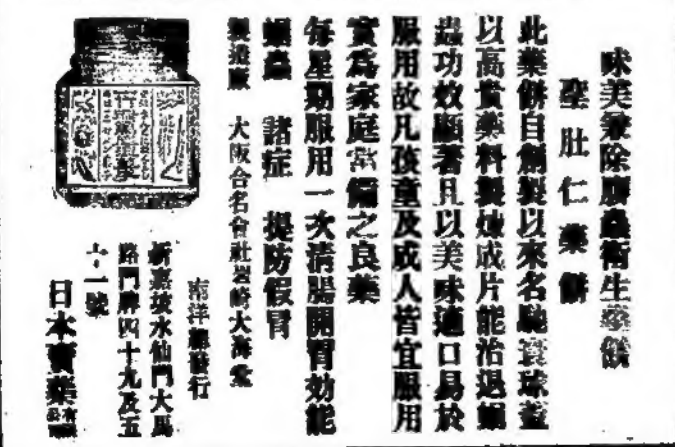 味美兼除腸蟲衛生藥餅
聖肚仁藥餅
此藥餅自創製以來名馳寰球蓋
以高貴藥料製煉成片能治退蛔
蟲功效顯著且以美味適口易於
服用故凡孩童及成人皆宜服用
實為家庭常備之良藥
每星期服用一次清腸開胃効能
蛔蟲 諸症 提防假冒
製造廠 大阪合名會社岩崎大海堂
南洋總發行
新嘉坡水仙門大馬
路門牌四十九及五
十一號
日本賣藥